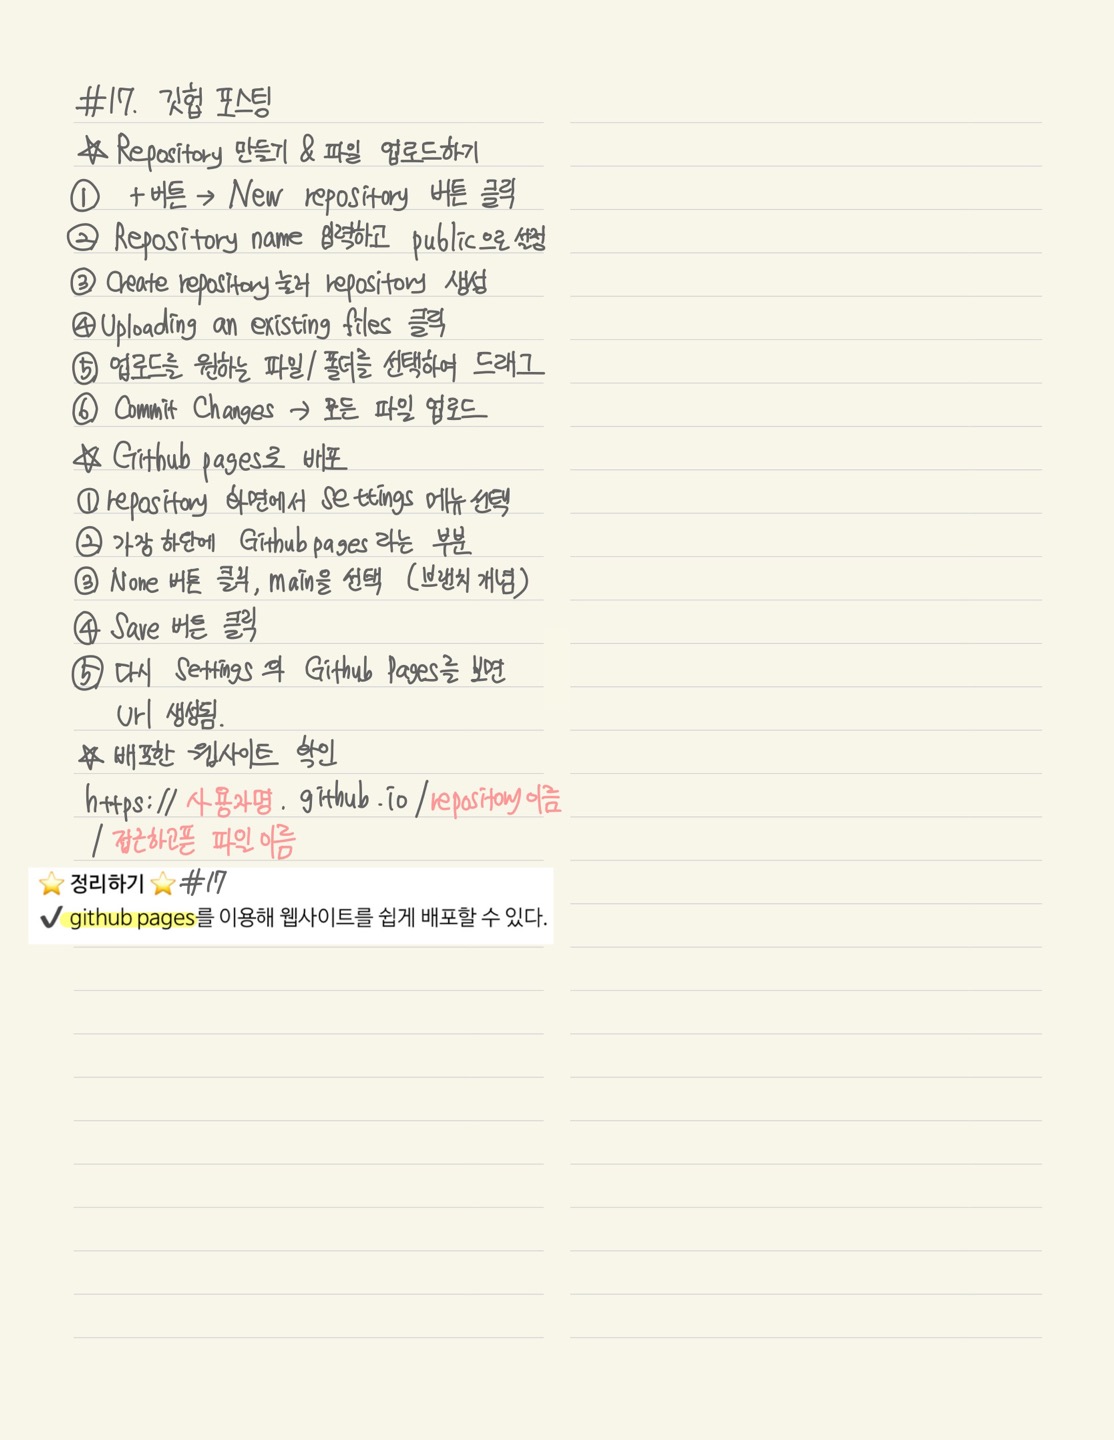 #17. 깃헙 포스팅
☆ Repository 만들기 & 파일 업로드하기
① +버튼 → New repository 버튼 클릭
② Repository name 입력하고 public으로 설정
③ Create repository 눌러 repository 생성
④ Uploading an existing files 클릭
⑤ 업로드를 원하는 파일/폴더를 선택하여 드래그
⑥ Commit Changes → 모든 파일 업로드
☆ Github pages로 배포
① repository 화면에서 Settings 메뉴 선택
② 가장 하단에 Github pages 라는 부분
③ None 버튼 클릭, main을 선택 (브랜치 개념)
④ Save 버튼 클릭
⑤ 다시 Settings의 Github Pages를 보면
Url 생성됨.
☆ 배포한 웹사이트 확인
https:// 사용자명. github.io /repository 이름
/ 접근하고픈 파일 이름
⭐ 정리하기 ⭐ #17
✔ github pages를 이용해 웹사이트를 쉽게 배포할 수 있다.